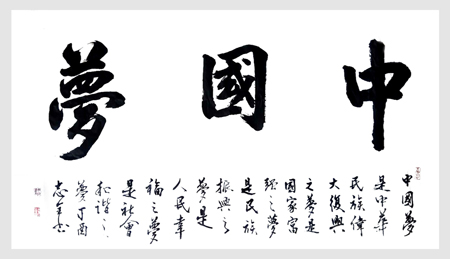 中國夢
中國夢
是中華
民族偉
大復興
之夢是
國家富
強之夢
是民族
振興之
夢是
人民幸
福之夢
是社會
和諧之
夢丁酉